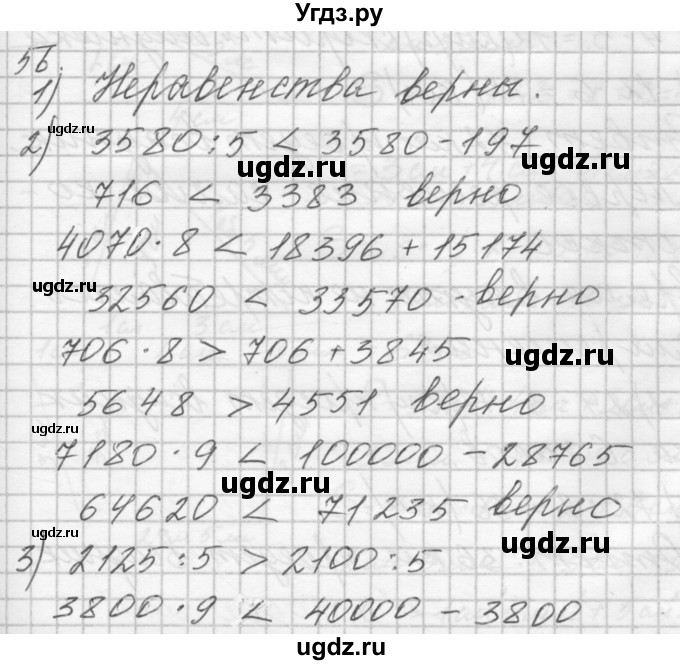 Угдз.ру
56.
1) Неравенства верны.
2) 3580:5 < 3580-197
716 < 3383 верно
4070·8 < 18396 + 15174
32560 < 33570 - верно
706·8 > 706 + 3845
5648 > 4551 верно
7180·9 < 100000 - 28765
64620 < 71235 верно
3) 2125:5 > 2100:5
3800·9 < 40000 - 3800
ugdz.ru
ugdz.ru
ugdz.ru
ugdz.ru
ugdz.ru
ugdz.ru
ugdz.ru
ugdz.ru
ugdz.ru